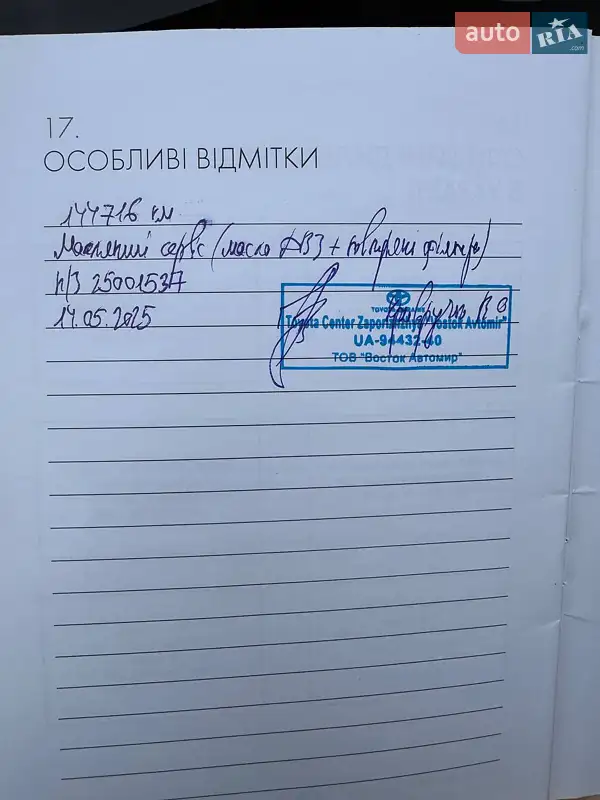 auto RIA .com
17.
ОСОБЛИВІ ВІДМІТКИ
144716 км
сервіс (масло ДВЗ + повітряні фільтри)
н/з 25001537
14.05.2025
Toyota Center Zaporizhzhya "Vostok Avtomir"
UA-94432-40
ТОВ "Восток Автомир"